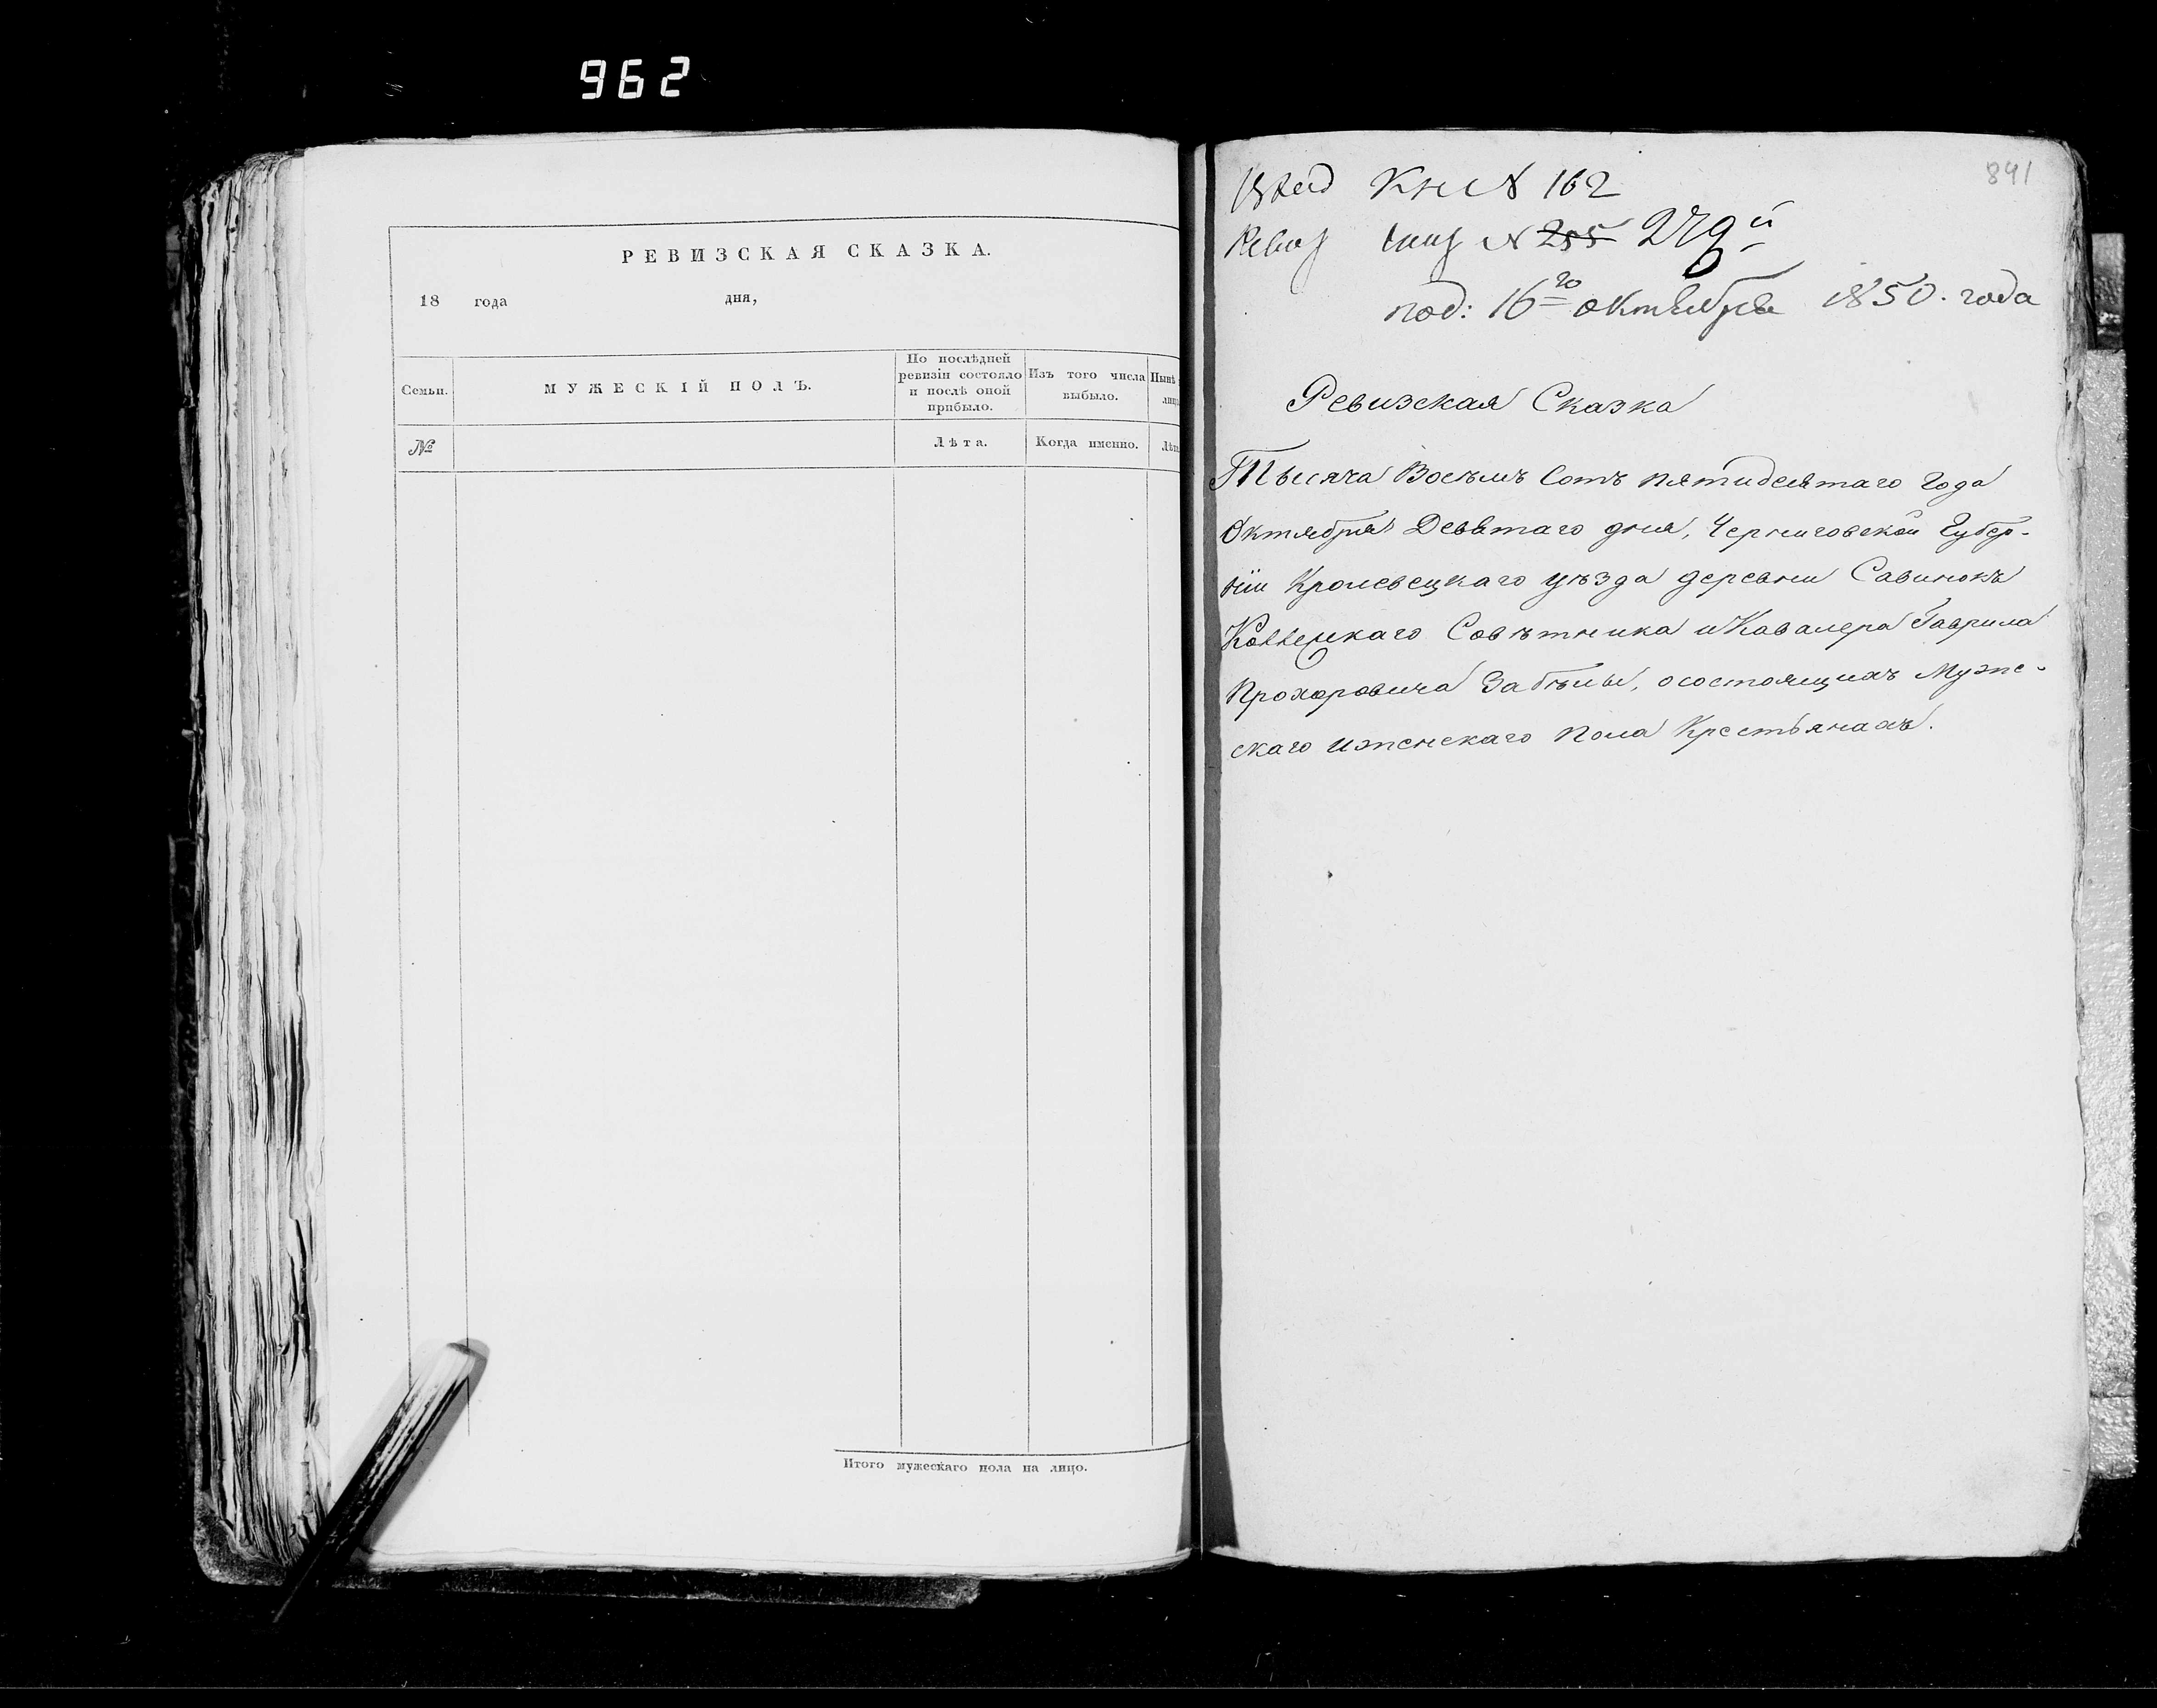 962
РЕВИЗСКАЯ СКАЗКА.
18 года дня,
Семьи.
МУЖЕСКІЙ ПОЛЪ.
По послѣдней
ревизіи состояло
и послѣ оной
прибыло.
Изъ того числа
выбыло.
Нынѣ
лиц
№
Лѣта.
Когда именно.
Лѣт
Итого мужескаго пола на лицо.
891
Кн № 162
№ 255 279й
под: 16го октября 1850. года
Ревизская Сказка
Тысяча Восѣмъ Сотъ пятидесятаго Года
Октября Девятаго дня, Черниговской Губер-
ніи Кролевецкаго уѣзда деревни Савинокъ
Совѣтника и Кавалера Гаврила
Прохоровича Забѣлы, о состоящихъ Муже-
скаго и женскаго пола Крестьянахъ.